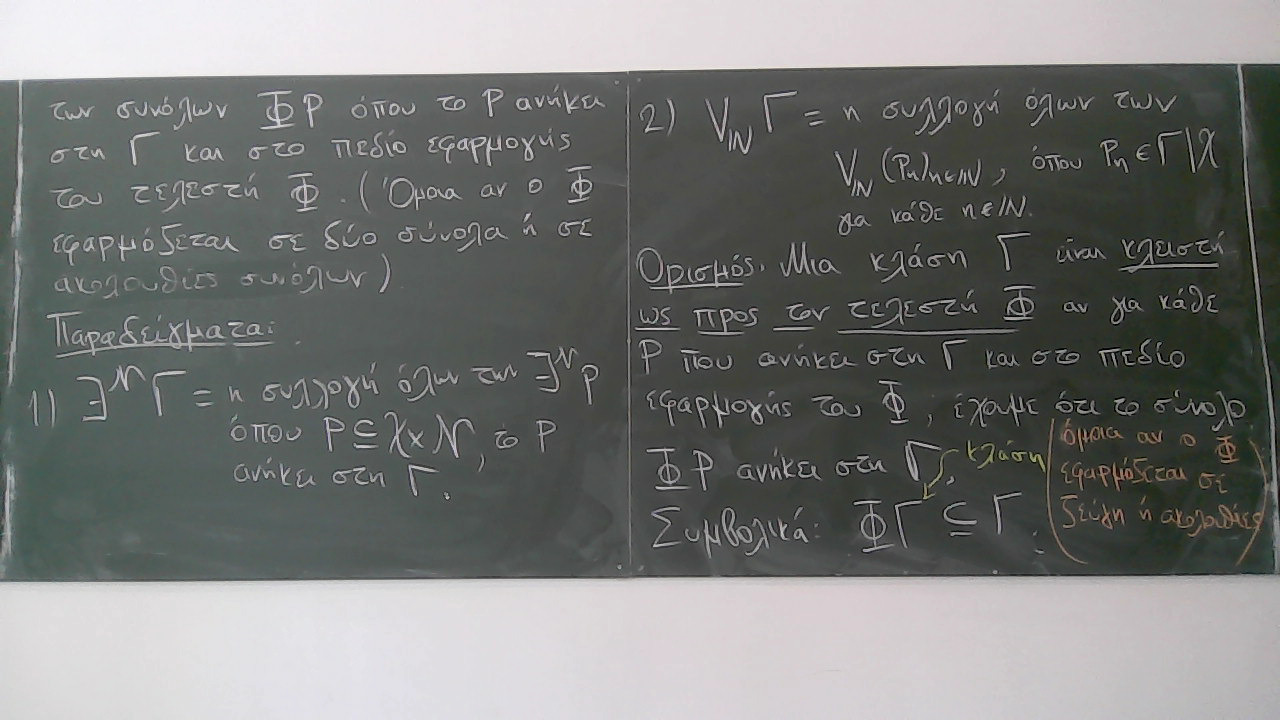 των συνόλων ΦP όπου το P ανήκει
στη Γ και στο πεδίο εφαρμογής
του τελεστή Φ. (Όμοια αν ο Φ
εφαρμόζεται σε δύο σύνολα ή σε
ακολουθίες συνόλων)
Παραδείγματα:
1) ∃^𝒩 Γ = η συλλογή όλων των ∃^𝒩 P
όπου P ⊆ 𝒳 × 𝒩, το P
ανήκει στη Γ.
2) ⋁_ℕ Γ = η συλλογή όλων των
⋁_ℕ (Pₙ)ₙ∈ℕ, όπου Pₙ ∈ Γ|𝒳
για κάθε n∈ℕ.
Ορισμός. Μια κλάση Γ είναι κλειστή
ως προς τον τελεστή Φ αν για κάθε
P που ανήκει στη Γ και στο πεδίο
εφαρμογής του Φ, έχουμε ότι το σύνολο
ΦP ανήκει στη Γ.
Συμβολικά: ΦΓ ⊆ Γ.
κλάση
(όμοια αν ο Φ
εφαρμόζεται σε
ζεύγη ή ακολουθίες)